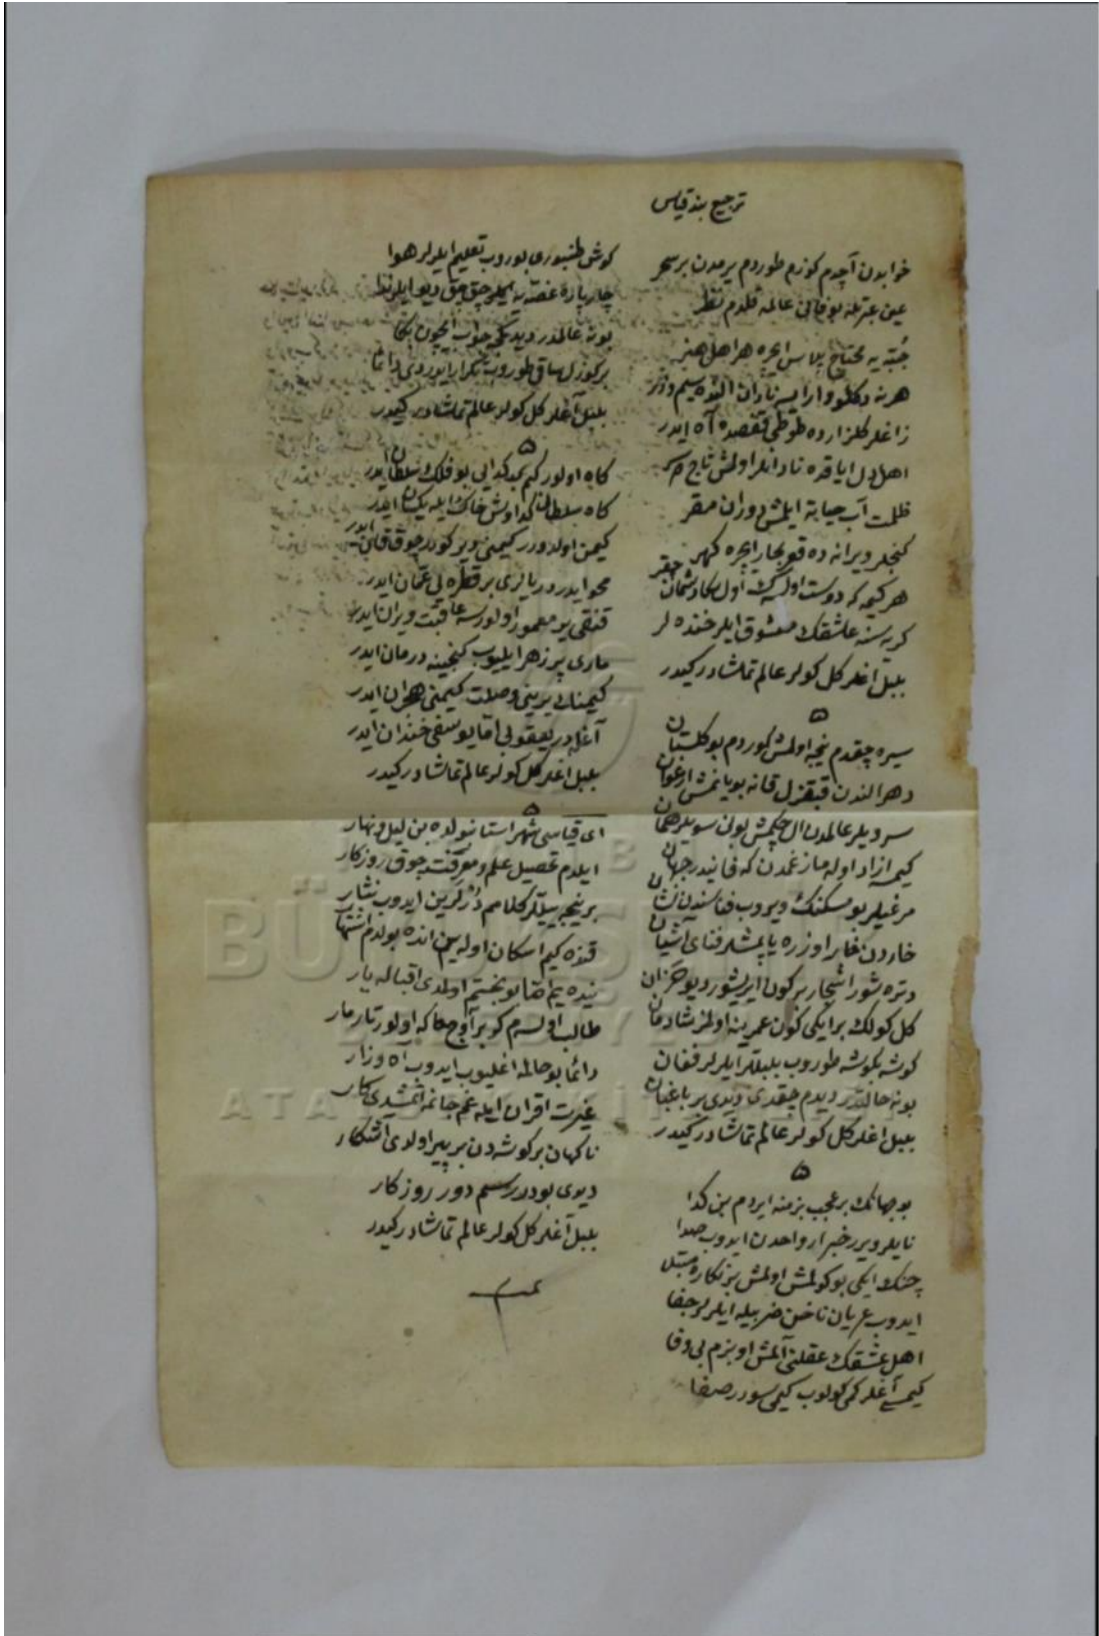 ترجیع بند قیاسی
خوابدن آچدم کوزم طوردم یرمدن بر سحر
عین عبرتله بو فانی عالمه قلدم نظر
جبه‌یه محتاج پلاس ایچره هر اهل هنر
هر نه دکلو وار ایسه نادان النده سیم و زر
زاغلر کلزارده طوطی قفصده آه ایدر
اهل دل ایاقده نادانلر اولمش تاج سر
ظلمت آب حیاته ایلمش دوران مقر
کنجلر ویرانه ده قعر بحار ایچره کهر
هر کیمه که دوست اولسه‌ک اول سکا دشمان چقر
کریه سنه عاشقک معشوق ایلر خنده لر
بلبل اغلر کل کولر عالم تماشادر کیدر
۵
سیره چقدم نیجه اولمش کوردم بو کلستان
دهر الندن قپقزل قانه بویانمش ارغوان
سرویلر عالمدن ال چکمش بونی سویلر همان
کیمسه ازاد اوله‌ماز غمدن که فانیدر جهان
مرغیلر بو مسکنک ویروب فناسندن نشان
خاردن خار اوزره یاپمشلر فنای آشیان
دتره شور اشجار بر کون ایریشور دیو خزان
کل کولک بر ایکی کون عمرینه اولمز شادمان
کوشه بکوشه طوروب بلبللر ایلرلر فغان
بو نه حالتدر دیدم چیقدی دیدی بر باغبان
بلبل اغلر کل کولر عالم تماشادر کیدر
۵
بو جهانک بر عجب بزمنه ایردم بن کدا
نایلر ویرر خبر ارواحدن ایدوب صدا
چنک ایکی بوکولمش اولمش بر نکاره مبتلا
ایدوب عریان ناخن ضربیله ایلرلر جفا
اهل عشقک عقلنی آلمش او بزم بی وفا
کیمسی آغلر کمی کولوب کیمی سورر صفا
کوش طنبوری بوروب تعلیم ایلرلر هوا
چارپاره غصه‌یه چق چق دیو ایلر ندا
بو نه عالمدر دیدم جواب ایچون بکا
بر کوزل ساقی طوروب تکرار ایدردی دائما
بلبل آغلر کل کولر عالم تماشادر کیدر
۵
کاه اولور کیم بر کدایی بو فلک سلطان ایدر
کاه سلطان کدا اولمش خاک ایله یکسان ایدر
کیمن اولدورر کیمنی ویر کولدرر چوق قان ایدر
محو ایدر دریالری بر قطره‌یی عمان ایدر
قنقی یر معمور اولورسه عاقبت ویران ایدر
ماری پر زهر ایلیوب کنجینه درمان ایدر
وصلت کیمنی هجران ایدر
آغلدر یعقوبی اما یوسفی خندان ایدر
بلبل اغلر کل کولر عالم تماشادر کیدر
۵
ای قیاسی شهر استانبولده بن لیل و نهار
ایلدم تحصیل علم و معرفت چوق روزکار
بر نیجه بیتلر کلامم در کزین ایدوب نثار
قنده کیم اسکان اولدیسم انده بولدم اشتهار
نیده‌یم اما بو بختم اولمدی اقباله یار
طالب اولسم کر بر آوج خاکه اولور تارمار
دائما بو حالمه اغلیوب ایدوب آه و زار
غیرت اقران ایله غم جانمه ایتمشدی کار
ناکهان بر کوشه‌دن بر پیر اولدی آشکار
دیدی بودر رسم دور روزکار
بلبل آغلر کل کولر عالم تماشادر کیدر
BÜYÜKŞEHİR
BELEDİYESİ
ATATÜRK KİTAPLIĞI